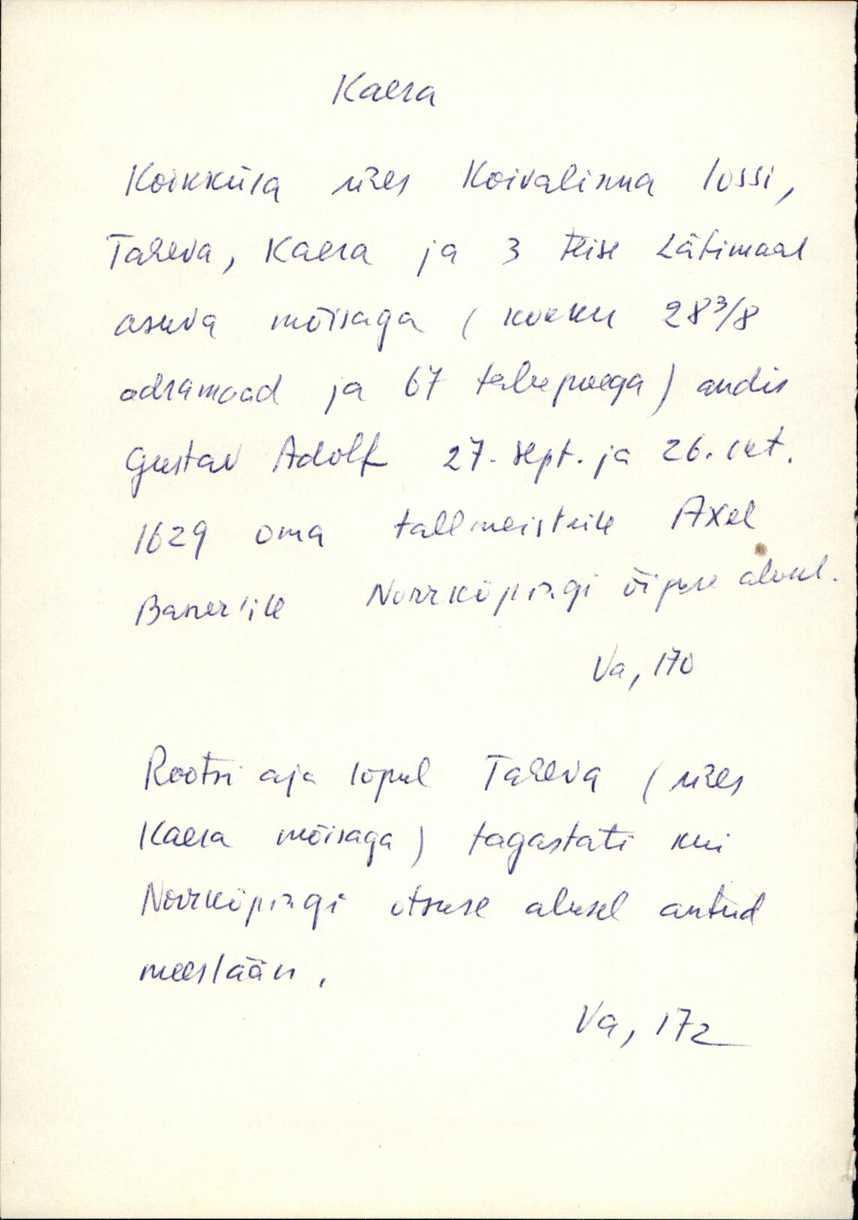 Kaera
Koikküla ühes Koivalinna lossi,
Taheva, Kaera ja 3 teise Lätimaal
asuva mõisaga (kokku 28 3/8
adramaad ja 67 talupoega) andis
Gustav Adolf 27. sept. ja 26. okt.
1629 oma tallmeistrile Axel
Baner'ile Norrköpingi õiguse alusel.
Va, 170
Rootsi aja lõpul Taheva (ühes
Kaera mõisaga) tagastati kui
Norrköpingi otsuse alusel antud
meeslään.
Va, 172